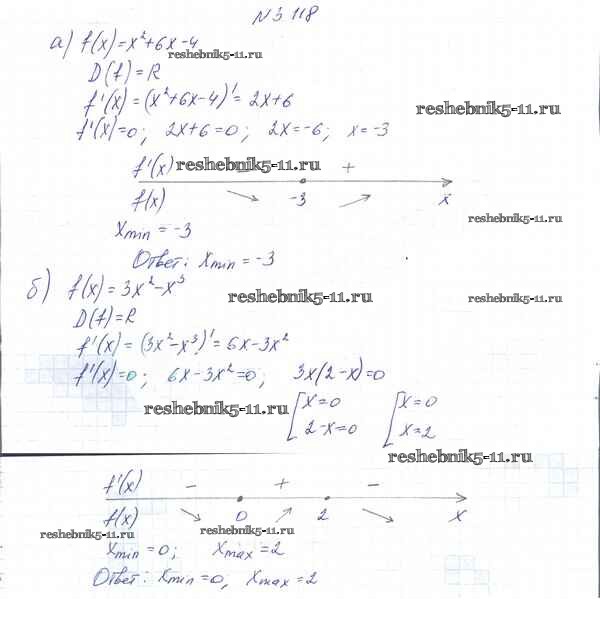 N 3.118
а) f(x)=x²+6x-4
reshebnik5-11.ru
D(f)=R
f'(x)=(x²+6x-4)'=2x+6
reshebnik5-11.ru
f'(x)=0; 2x+6=0; 2x=-6; x=-3
f'(x) reshebnik5-11.ru +
f(x) -3 x
reshebnik5-11.ru
xmin = -3
Ответ: xmin = -3
б) f(x)=3x²-x³
reshebnik5-11.ru reshebnik5-11.ru
D(f)=R
f'(x)=(3x²-x³)'=6x-3x²
f'(x)=0; 6x-3x²=0; 3x(2-x)=0
reshebnik5-11.ru [x=0 [x=0
2-x=0 x=2
reshebnik5-11.ru
f'(x) - + -
f(x) 0 2 x
reshebnik5-11.ru reshebnik5-11.ru
xmin=0; xmax=2
Ответ: xmin=0, xmax=2